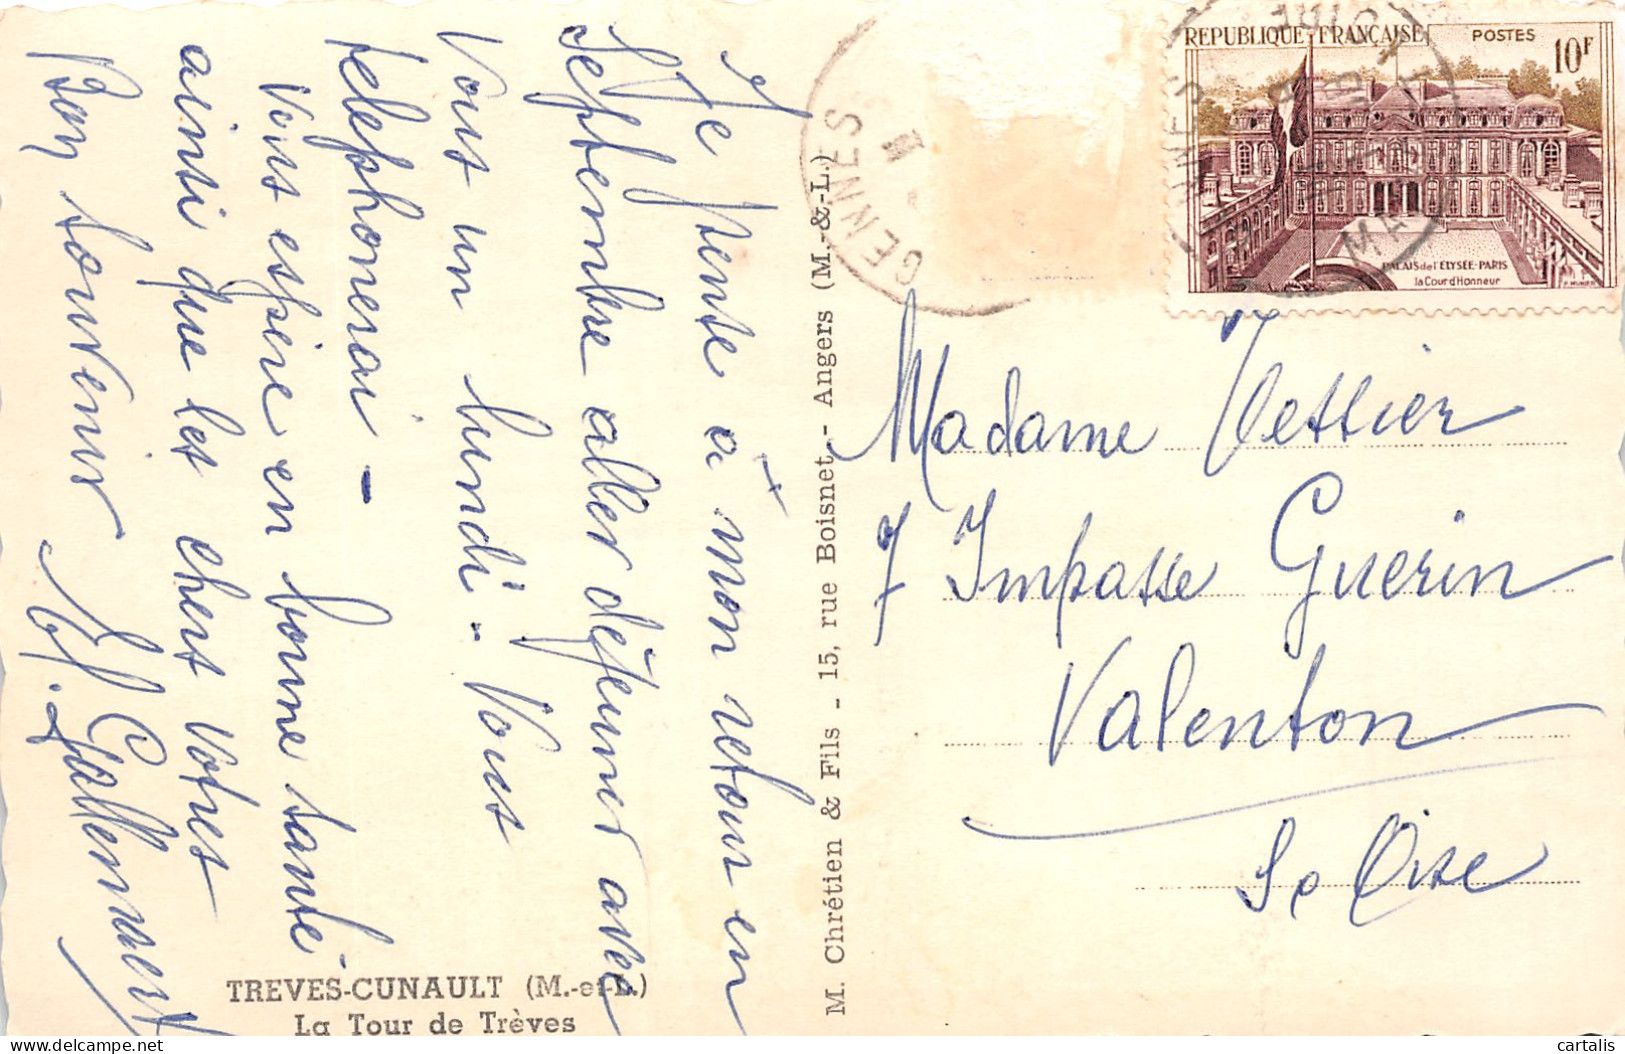 Je pense à mon retour en
Septembre aller déjeuner avec
Vous un lundi - Vous
telephonerai -
Vous espère en bonne santé
ainsi que les chers votres
Bon souvenir
M. Gallemaert
TREVES-CUNAULT (M.-et-L.)
La Tour de Trèves
M. Chrétien & Fils - 15, rue Boisnet - Angers (M.-&-L.)
GENNES
REPUBLIQUE FRANÇAISE
POSTES
10F
PALAIS de l'ÉLYSÉE-PARIS
la Cour d'Honneur
Madame Vettier
7 Impasse Guerin
Valenton
S et Oise
cartalis